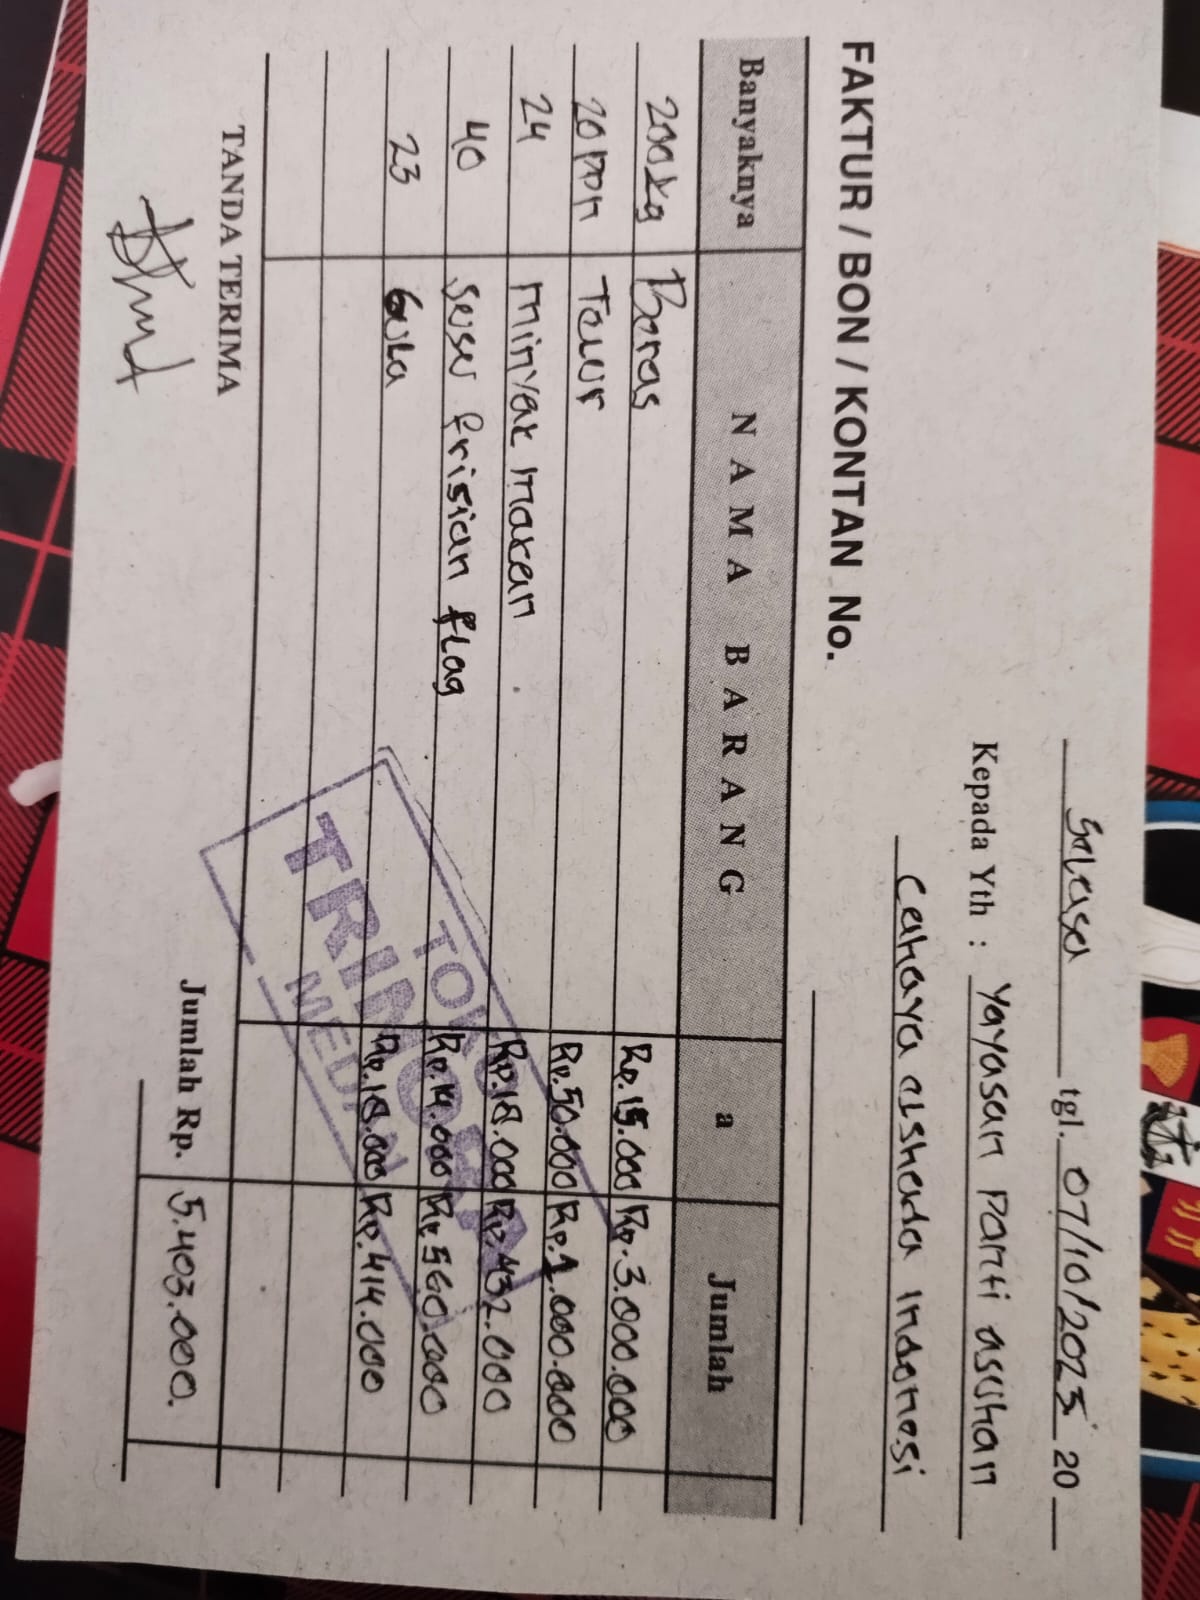 Selasa tgl. 07/10/2025 20
Kepada Yth : Yayasan Panti asuhan
Cahaya alsheda Indonesi
FAKTUR / BON / KONTAN No.
Banyaknya NAMA BARANG a Jumlah
200 kg Beras Rp.15.000 Rp.3.000.000
20 ppn Telur Rp.50.000 Rp.1.000.000
24 minyak makan Rp.18.000 Rp.432.000
40 susu frisian flag Rp.14.000 Rp.560.000
23 Gula Rp.18.000 Rp.414.000
TOKO
MEDAN
TANDA TERIMA
Jumlah Rp. 5.403.000.